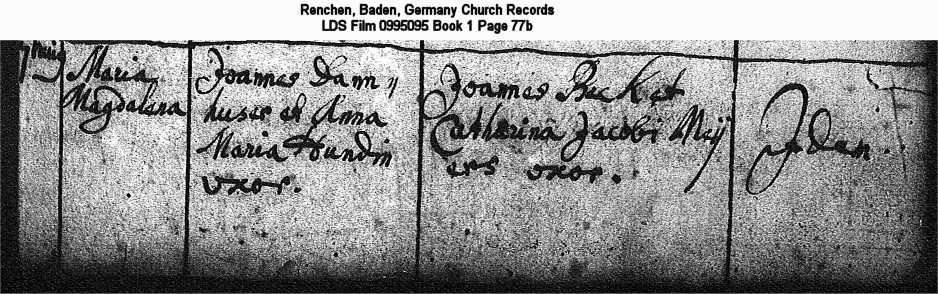 Renchen, Baden, Germany Church Records
LDS Film 0995095 Book 1 Page 77b
Maria
Magdalena
Joannes Dam=
huser et Anna
Maria Hundin
uxor.
Joannes
Catherina Jacobi Meij
ers uxor.